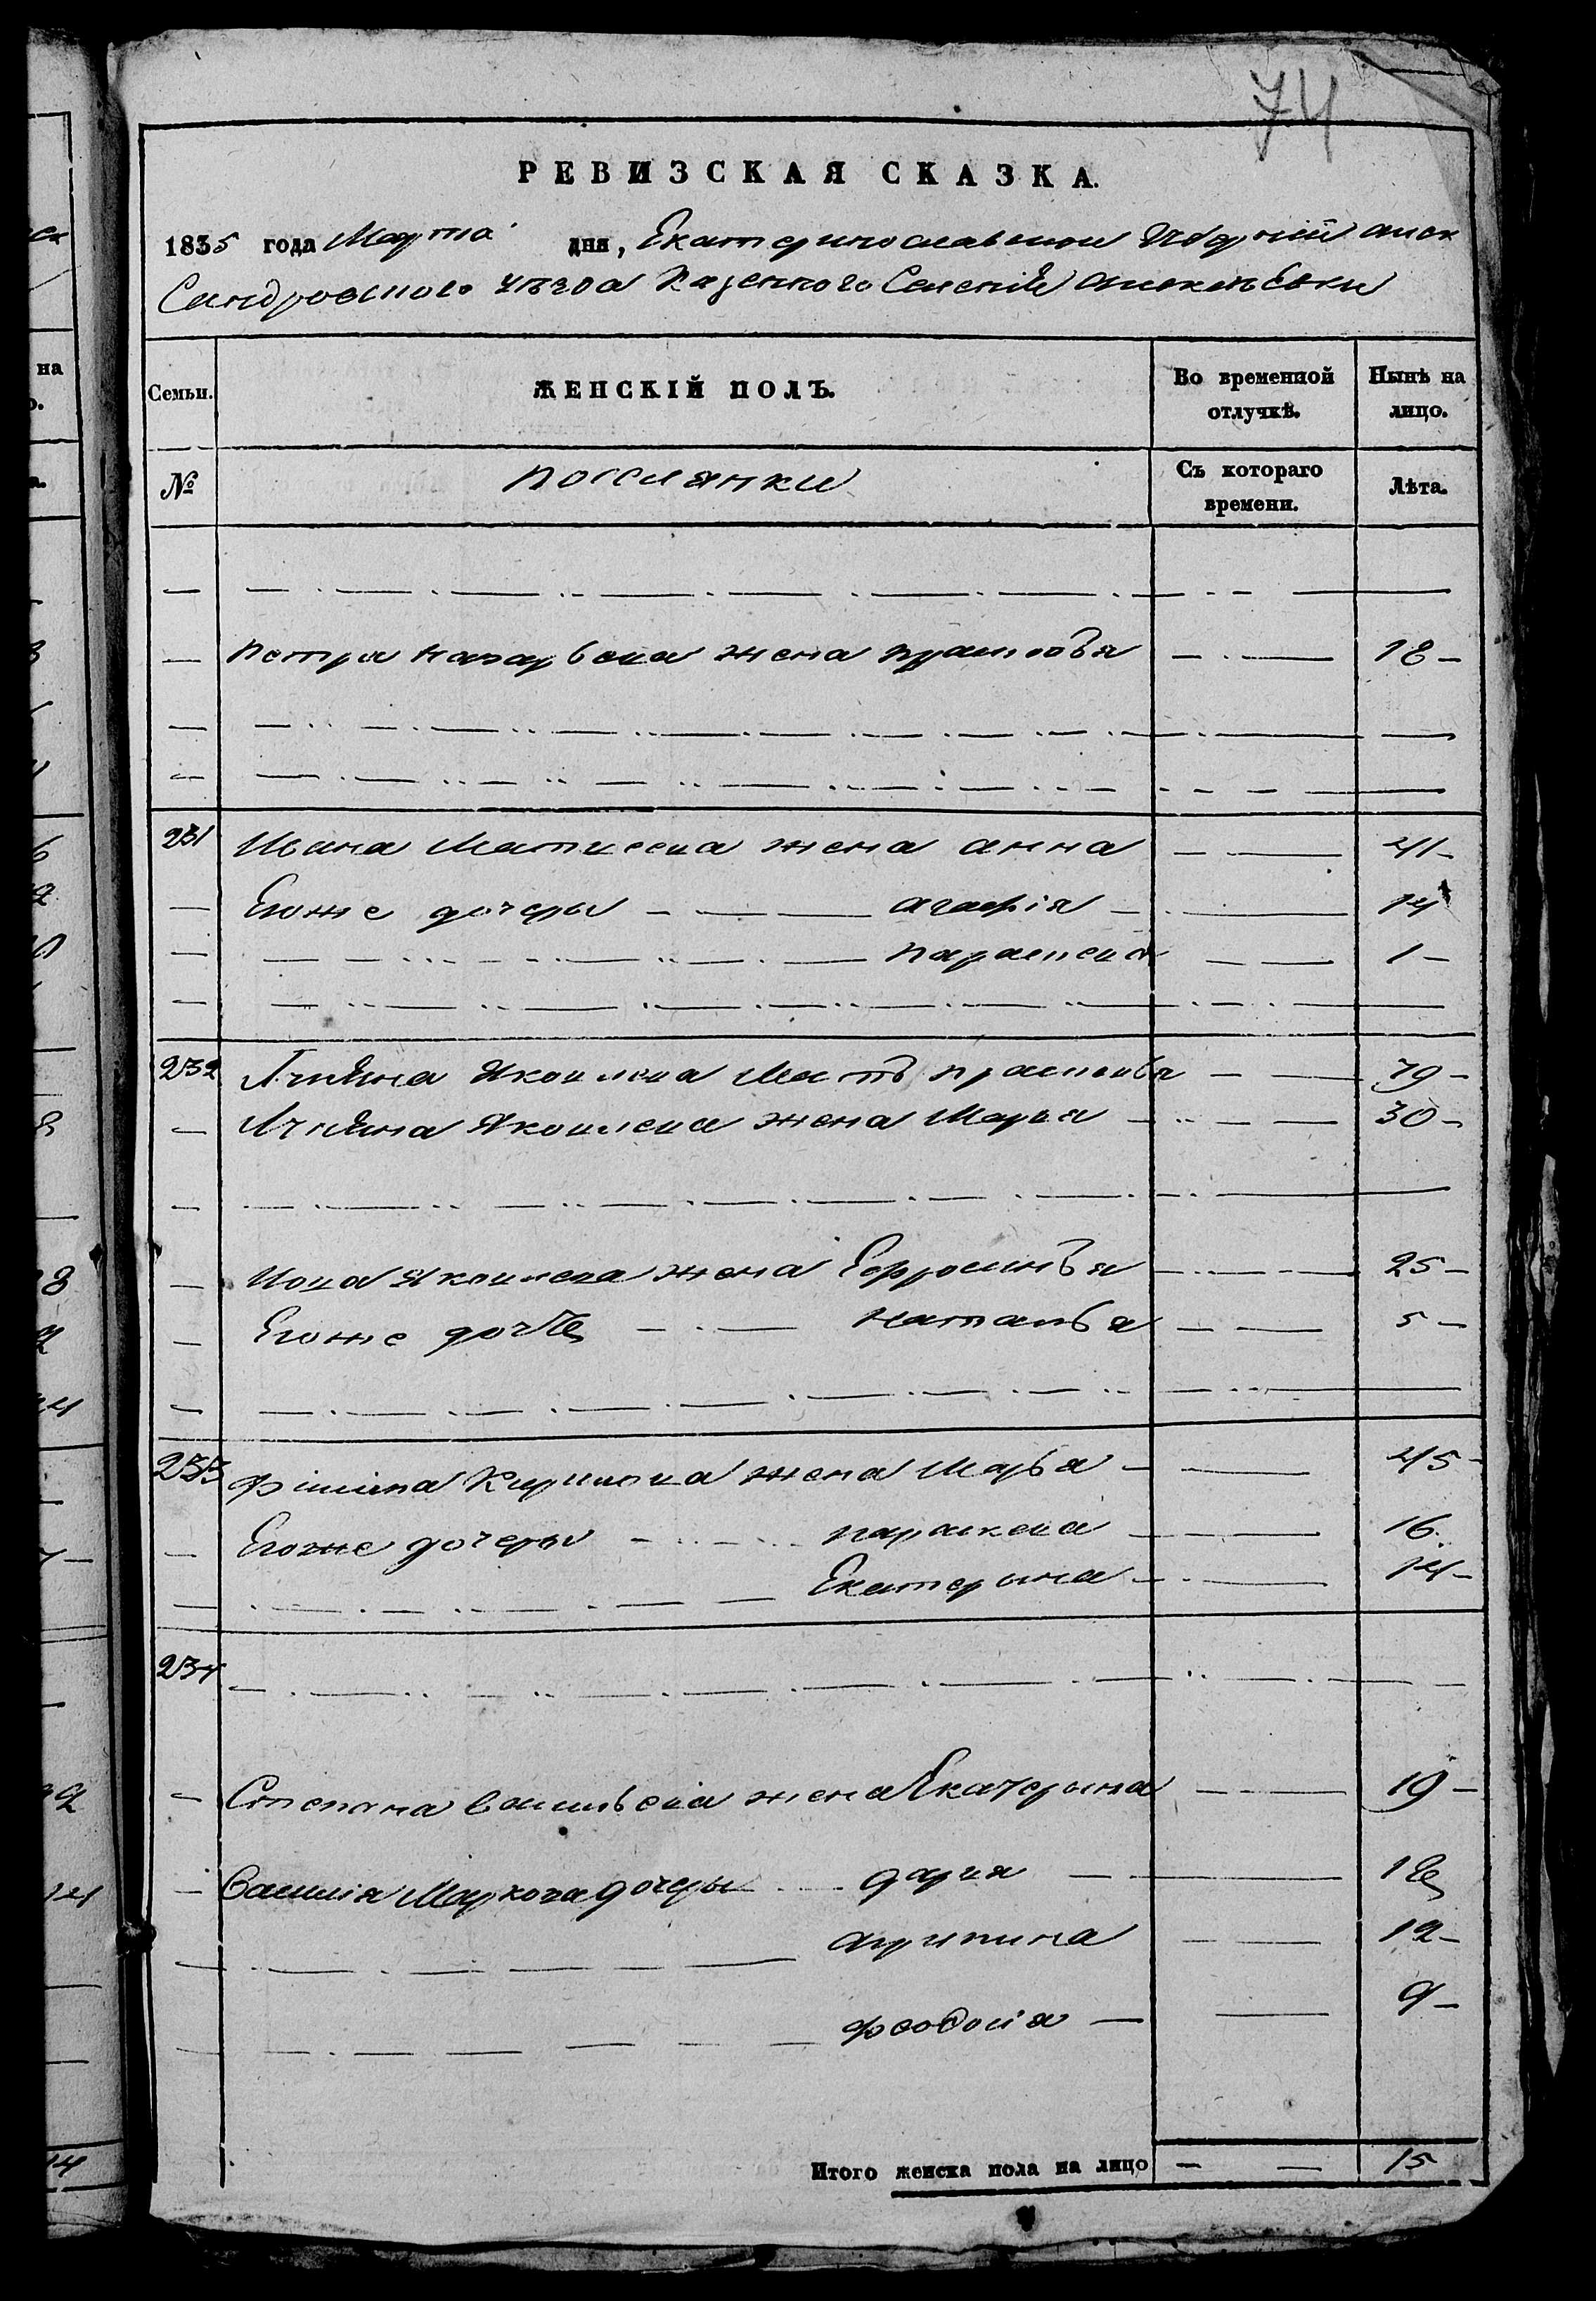 74
РЕВИЗСКАЯ СКАЗКА.
1835 года Марта дня, Екатеринославской Губерній Алек
Сандровского уѣзда Казенного Селенія Алексѣевки
Семьи. ЖЕНСКІЙ ПОЛЪ. Во временной отлучкѣ. Нынѣ на лицо.
№ поселянки Съ котораго времени. Лѣта.
Петра Назарьева жена Прасковья 18
231 Ивана Матвеева жена Анна 41
Егоже дочеры Агафія 14
Параскева 1
232 Лукіяна Яковлева Мать Прасковья 79
Лукіяна Яковлева жена Марья 30
Якова Яковлева жена Ефросинья 25
Егоже дочь Наталья 5
233 Филипа Кирилова жена Марья 45
Егоже дочеры Параскева 16
Екатерина 14
234
Степана Васильева жена Екатерына 19
Василія Маркова дочеры Дария 18
Агрипина 12
Феодосія 9
Итого женска пола на лицо 15